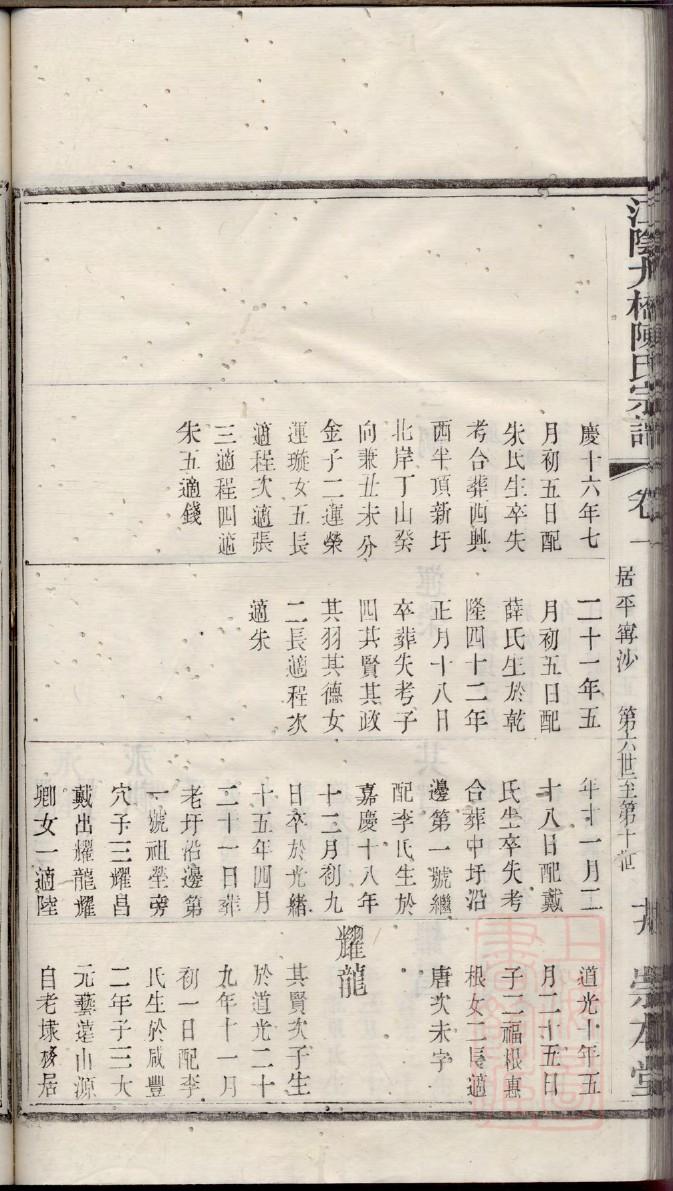 江陰九橋陳氏宗譜
卷一
居平甯沙
第六世至第十世
崇本堂
慶十六年七
月初五日配
朱氏生卒失
考合葬西興
西半頂新圩
北岸丁山癸
向兼丑未分
金子二運榮
運璇女五長
適程次適張
三適程四適
朱五適錢
二十一年五
月初五日配
薛氏生於乾
隆四十二年
正月十八日
卒葬失考子
四其賢其政
其羽其德女
二長適程次
適朱
年十一月二
十八日配戴
氏生卒失考
合葬中圩沿
邊第一號繼
配李氏生於
嘉慶十八年
十二月初九
日卒於光緒
十五年四月
二十一日葬
老圩沿邊第
一號祖塋旁
穴子三耀昌
戴出耀龍耀
卿女一適陸
道光十年五
月二十五日
子二福根惠
根女二長適
唐次未字
耀龍
其賢次子生
於道光二十
九年十一月
初一日配李
氏生於咸豐
二年子三大
元藝蓮山源
自老埭移居